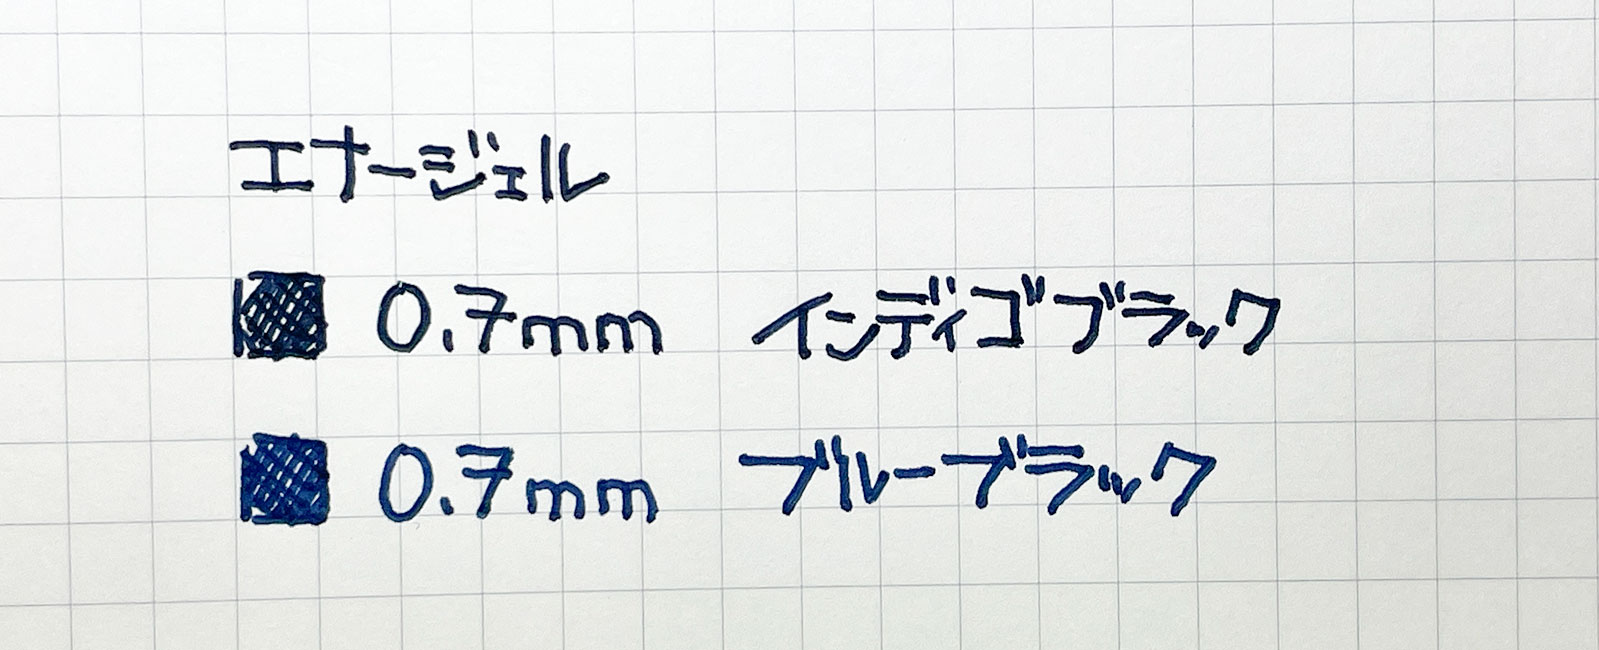 エナージェル
0.7mm インディゴブラック
0.7mm ブルーブラック